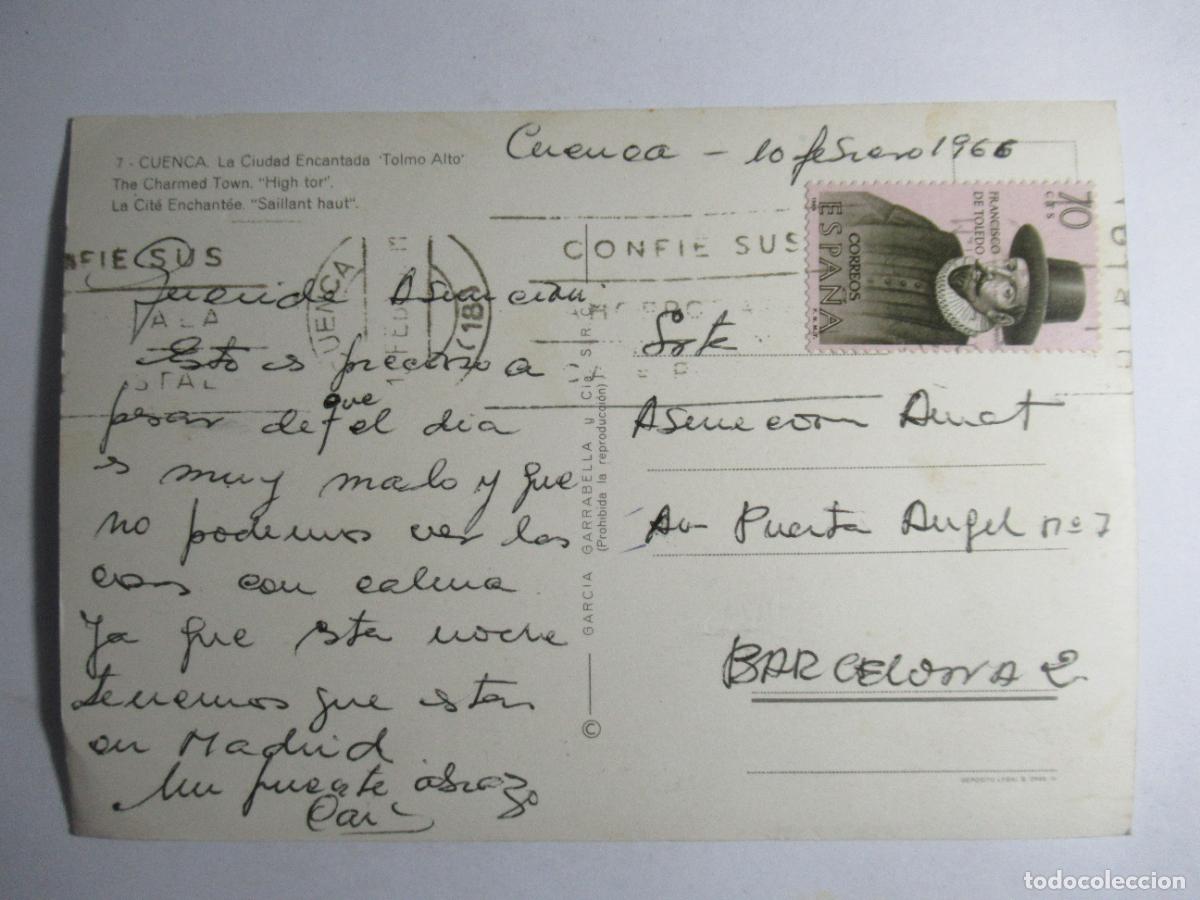 7 - CUENCA. La Ciudad Encantada 'Tolmo Alto'
The Charmed Town. "High tor".
La Cité Enchantée. "Saillant haut".
Cuenca - 10 febrero 1966
Querida Asuncion:
Esto es precioso a
pesar de que el dia
es muy malo y que
no podemos ver las
cosas con calma
Ya que esta noche
tenemos que estar
en Madrid
Un fuerte abrazo
Cari
FIE SUS
ALA
STAL
CUENCA
CONFIE SUS
70
CTS
FRANCISCO
DE TOLEDO
CORREOS
ESPAÑA
GARCIA GARRABELLA y Cía
(Prohibida la reproducción)
©
Srta
Asuncion Amat
Av- Puerta Angel nº 7
BARCELONA 2
DEPOSITO LEGAL B.
todocoleccion